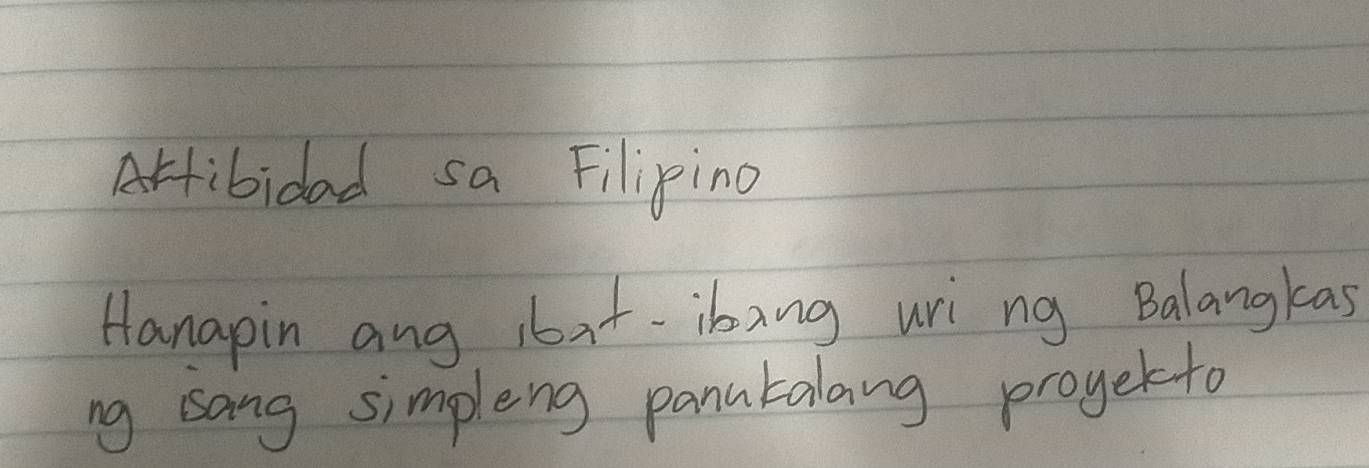 Aktibidad sa Filipino
Hanapin ang ibat-ibang uri ng Balangkas
ng isang simpleng panukalang proyekto